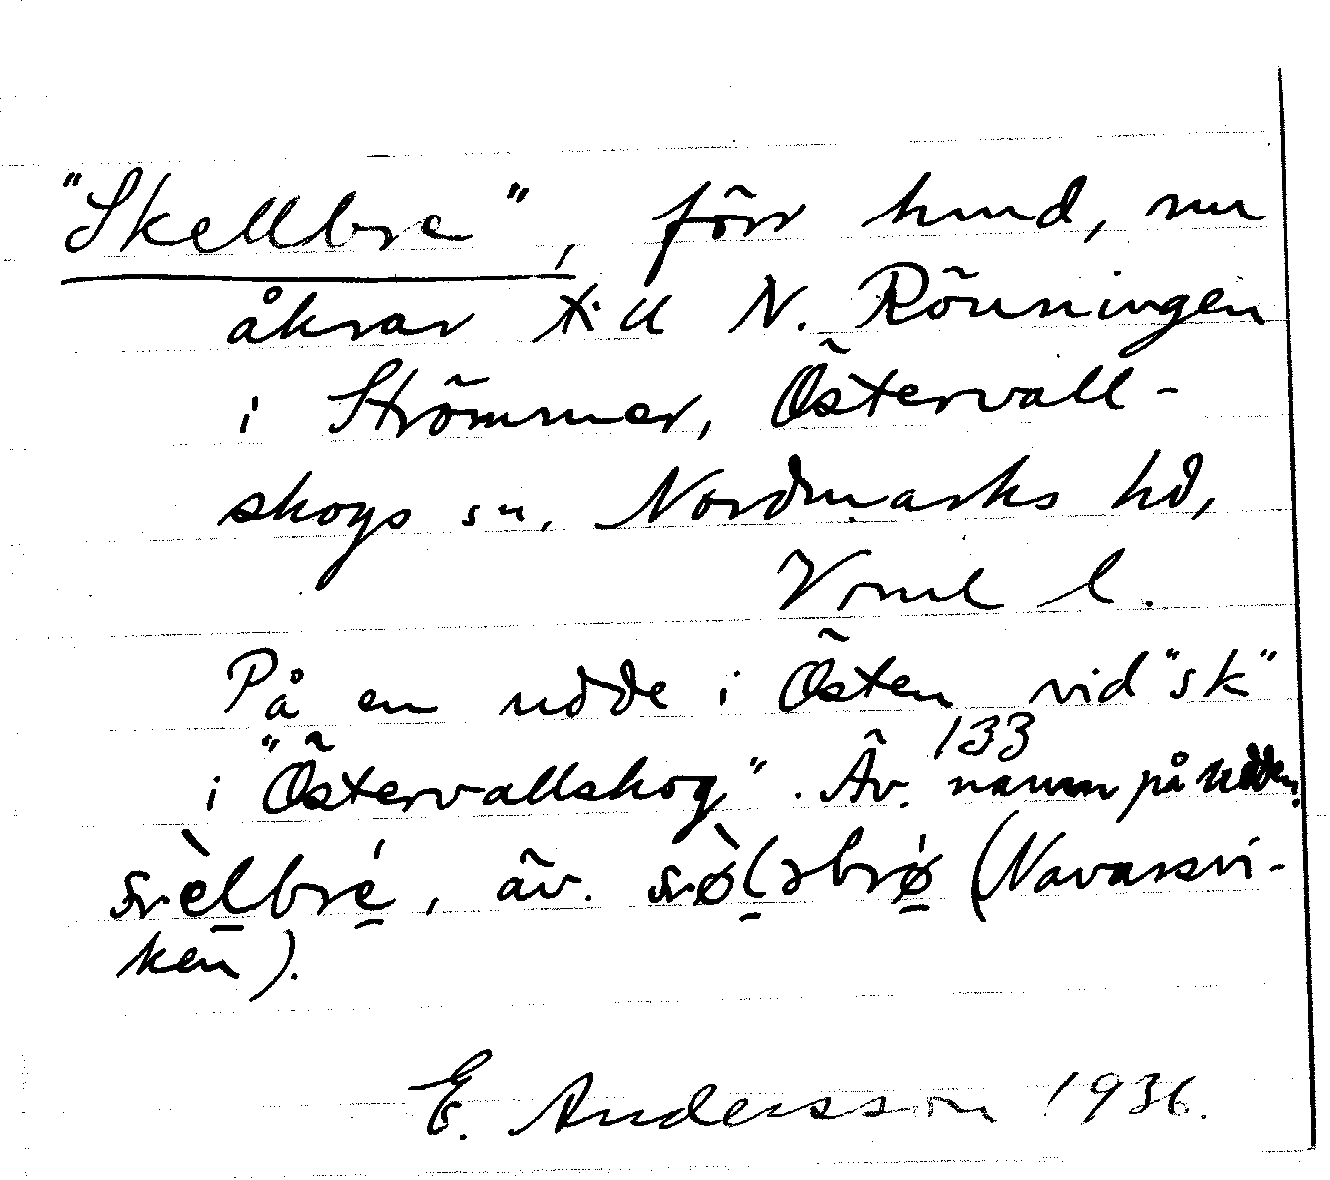 "Skellbre", förr hund, nu
åkrar till N. Rönningen
i Strömmer, Östervall-
skogs sn. Nordmarks hd,
Vrml l.
På en udde i Östen vid "sk"
i "Östervallskog". Äv. namn på udden.
133
, äv. (Navarsvi-
ken).
E. Andersson 1936.